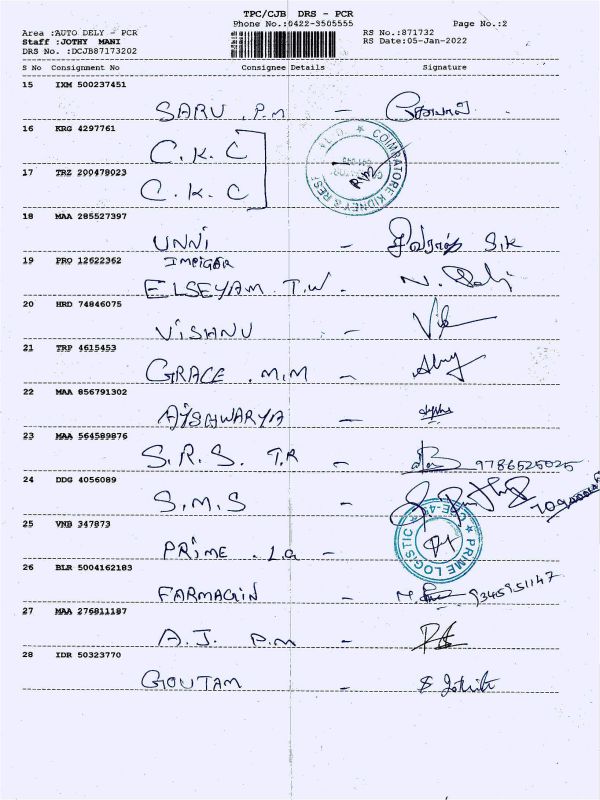 TPC/CJB DRS - PCR
Phone No.:0422-3505555 Page No.:2
Area :AUTO DELY - PCR RS No.:871732
Staff :JOTHY MANI RS Date:05-Jan-2022
DRS No. :DCJB87173202
S No Consignment No Consignee Details Signature
15 IXM 500237451
SARU . P.M -
16 KRG 4297761
C.K.C
COIMBATORE KIDNEY & RES
17 TRZ 200478023
C.K.C
18 MAA 285527397
UNNI - S.K
19 PRO 12622362
IMPIGAR
ELSEYAM T.W. - N.
20 HRD 74846075
VISHNU -
21 TRP 4615453
GRACE . M.M -
22 MAA 856791302
AISHWARYA -
23 MAA 564589876
S.R.S. T.R - 9786525025
24 DDG 4056089
S.M.S -
25 VNB 347873
PRIME . LG -
PRIME LOGISTIC
26 BLR 5004162183
FARMAGIN - 9345951147
27 MAA 276811187
A.J. P.M -
28 IDR 50323770
GOUTAM -